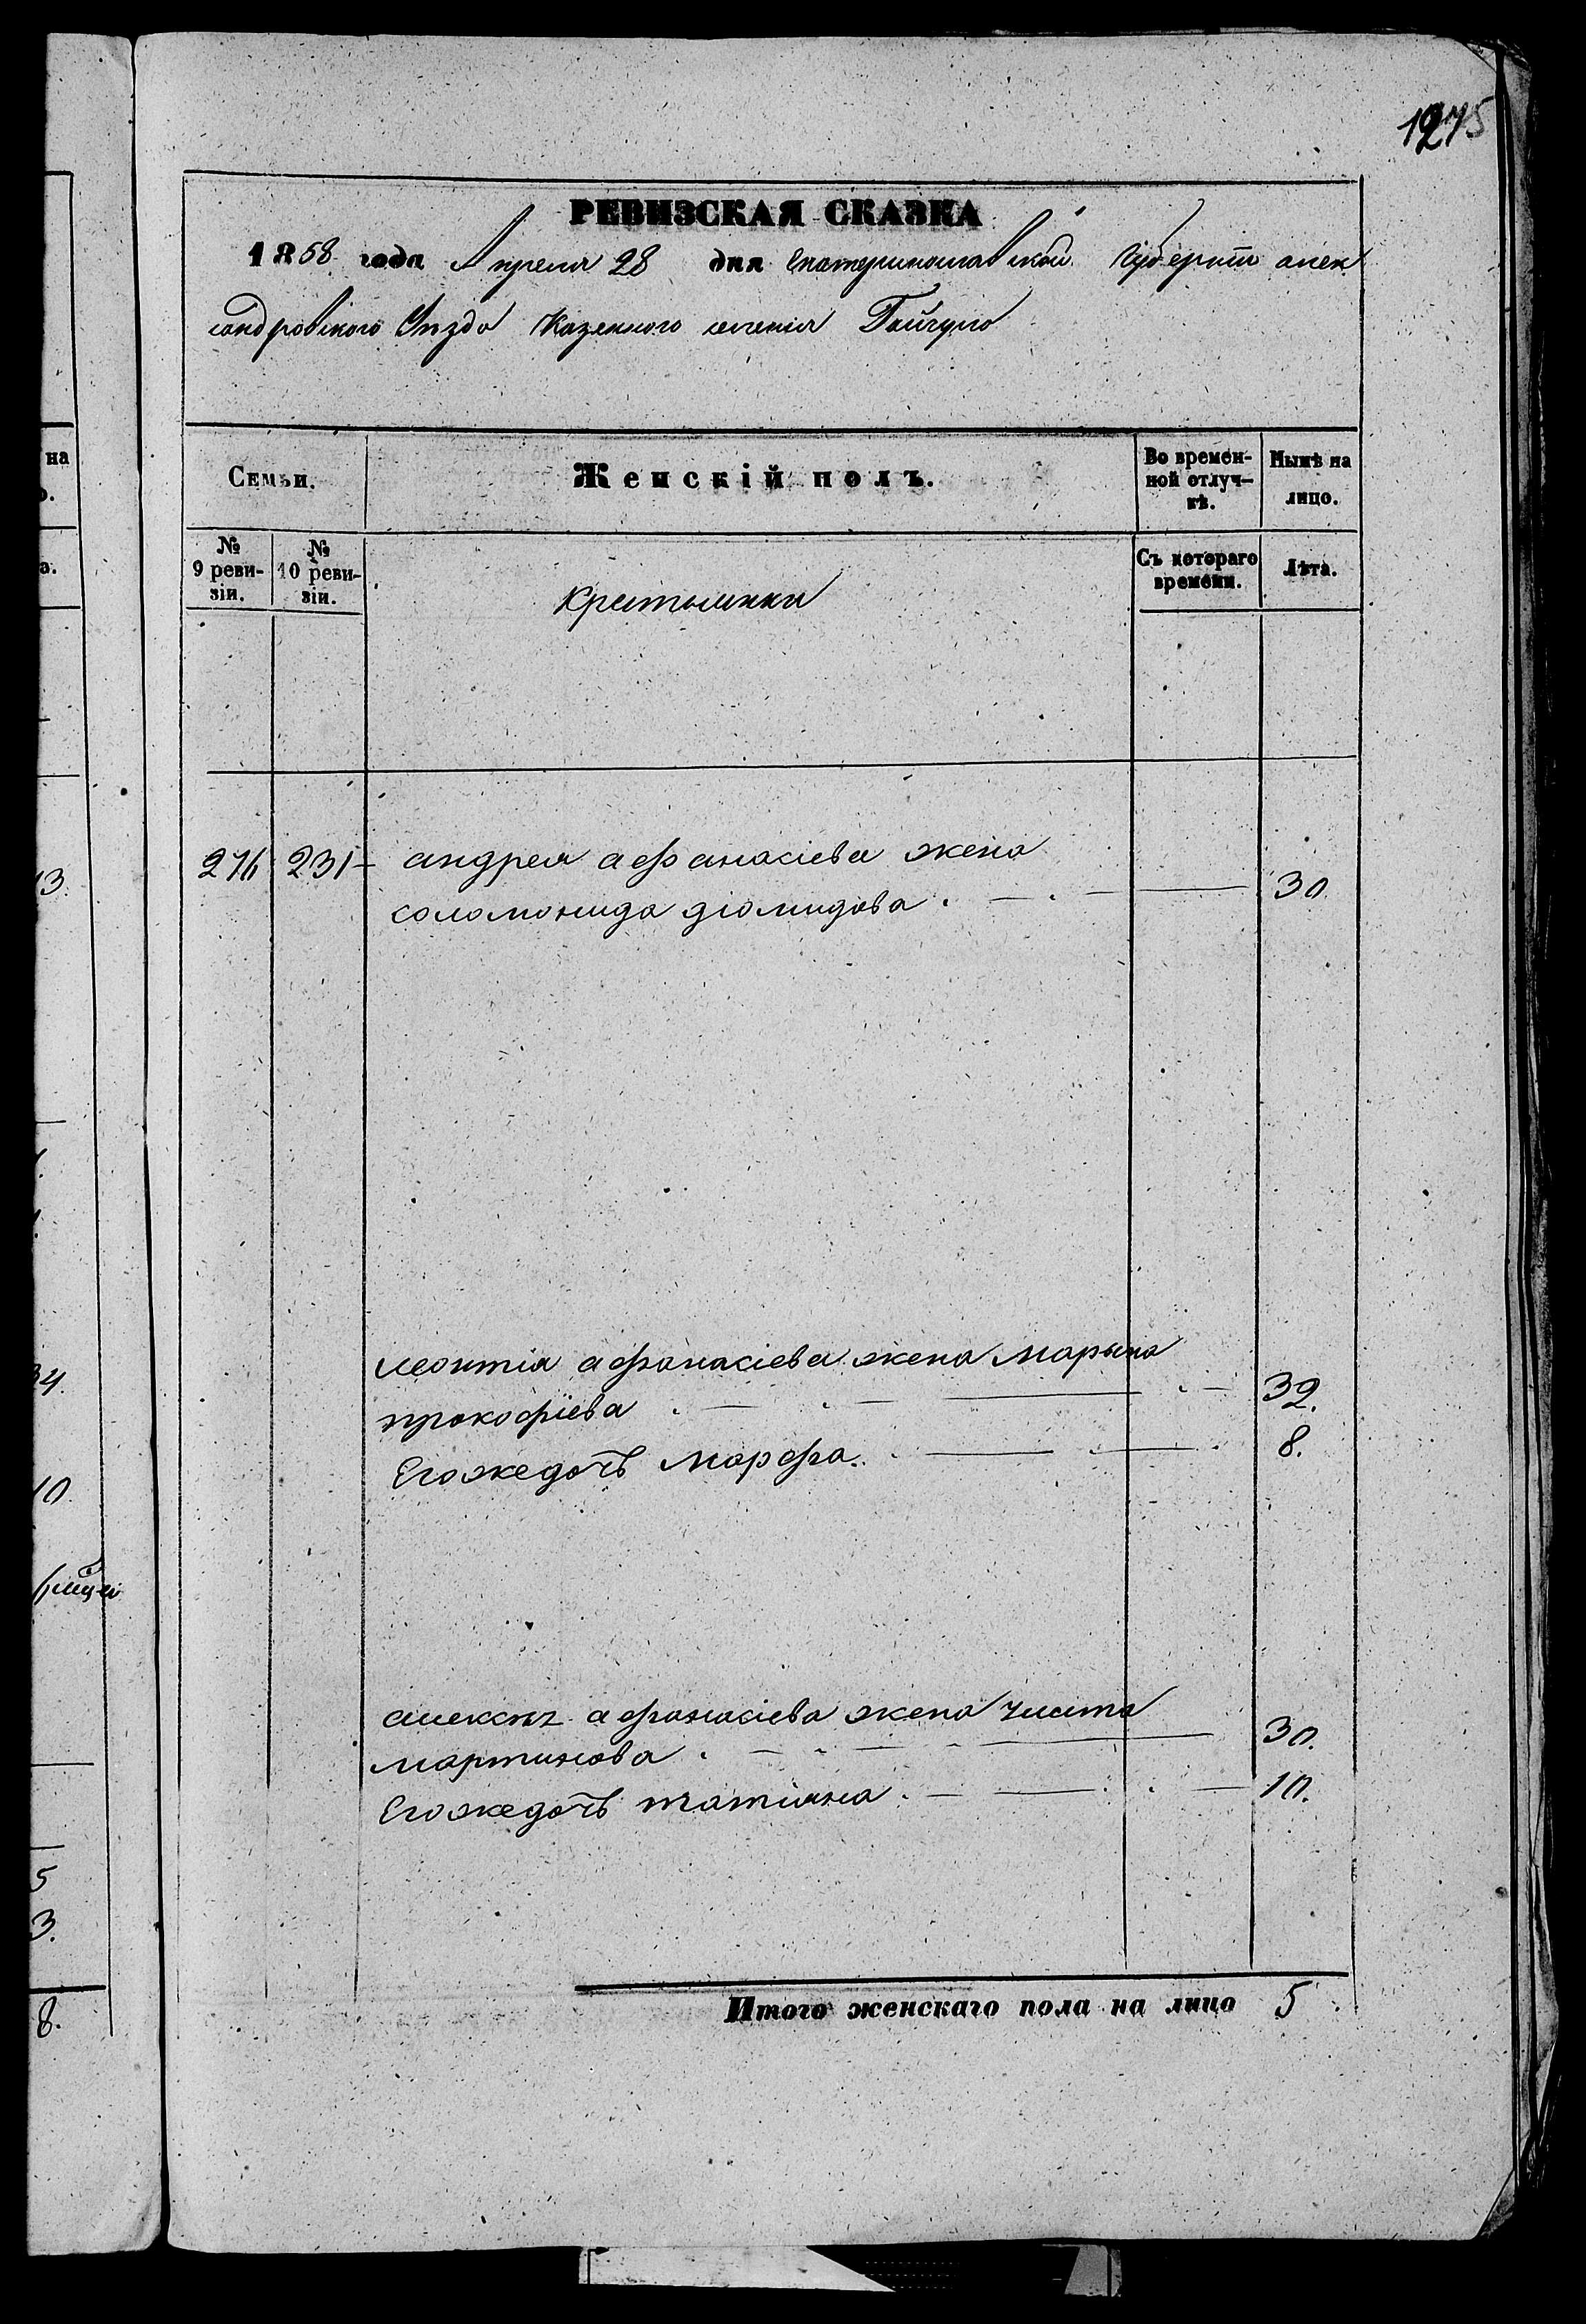 1275
РЕВИЗСКАЯ СКАЗКА
1858 года Апреля 28 дня Екатеринославской Губернiи алек
сандровского Уѣзда Казенного селенiя Гайчула
на
Семьи.
Женскiй полъ.
Во времен-
ной отлуч-
кѣ.
Нынѣ на
лицо.
№
9 реви-
зiи.
№
10 реви-
зiи.
Крестьянки
Съ котораго
времени.
Лѣта.
276 231 андрея афанасiева жена
соломонида дiомидова 30
леонтiя афанасiева жена марына
прокофiева 32.
Егожедочь марфа. 8.
алексѣя афанасiева жена
мартинова 30.
Егожедочь татiяна 10.
Итого женскаго пола на лицо 5
13.
34.
10.
5
3.
8.